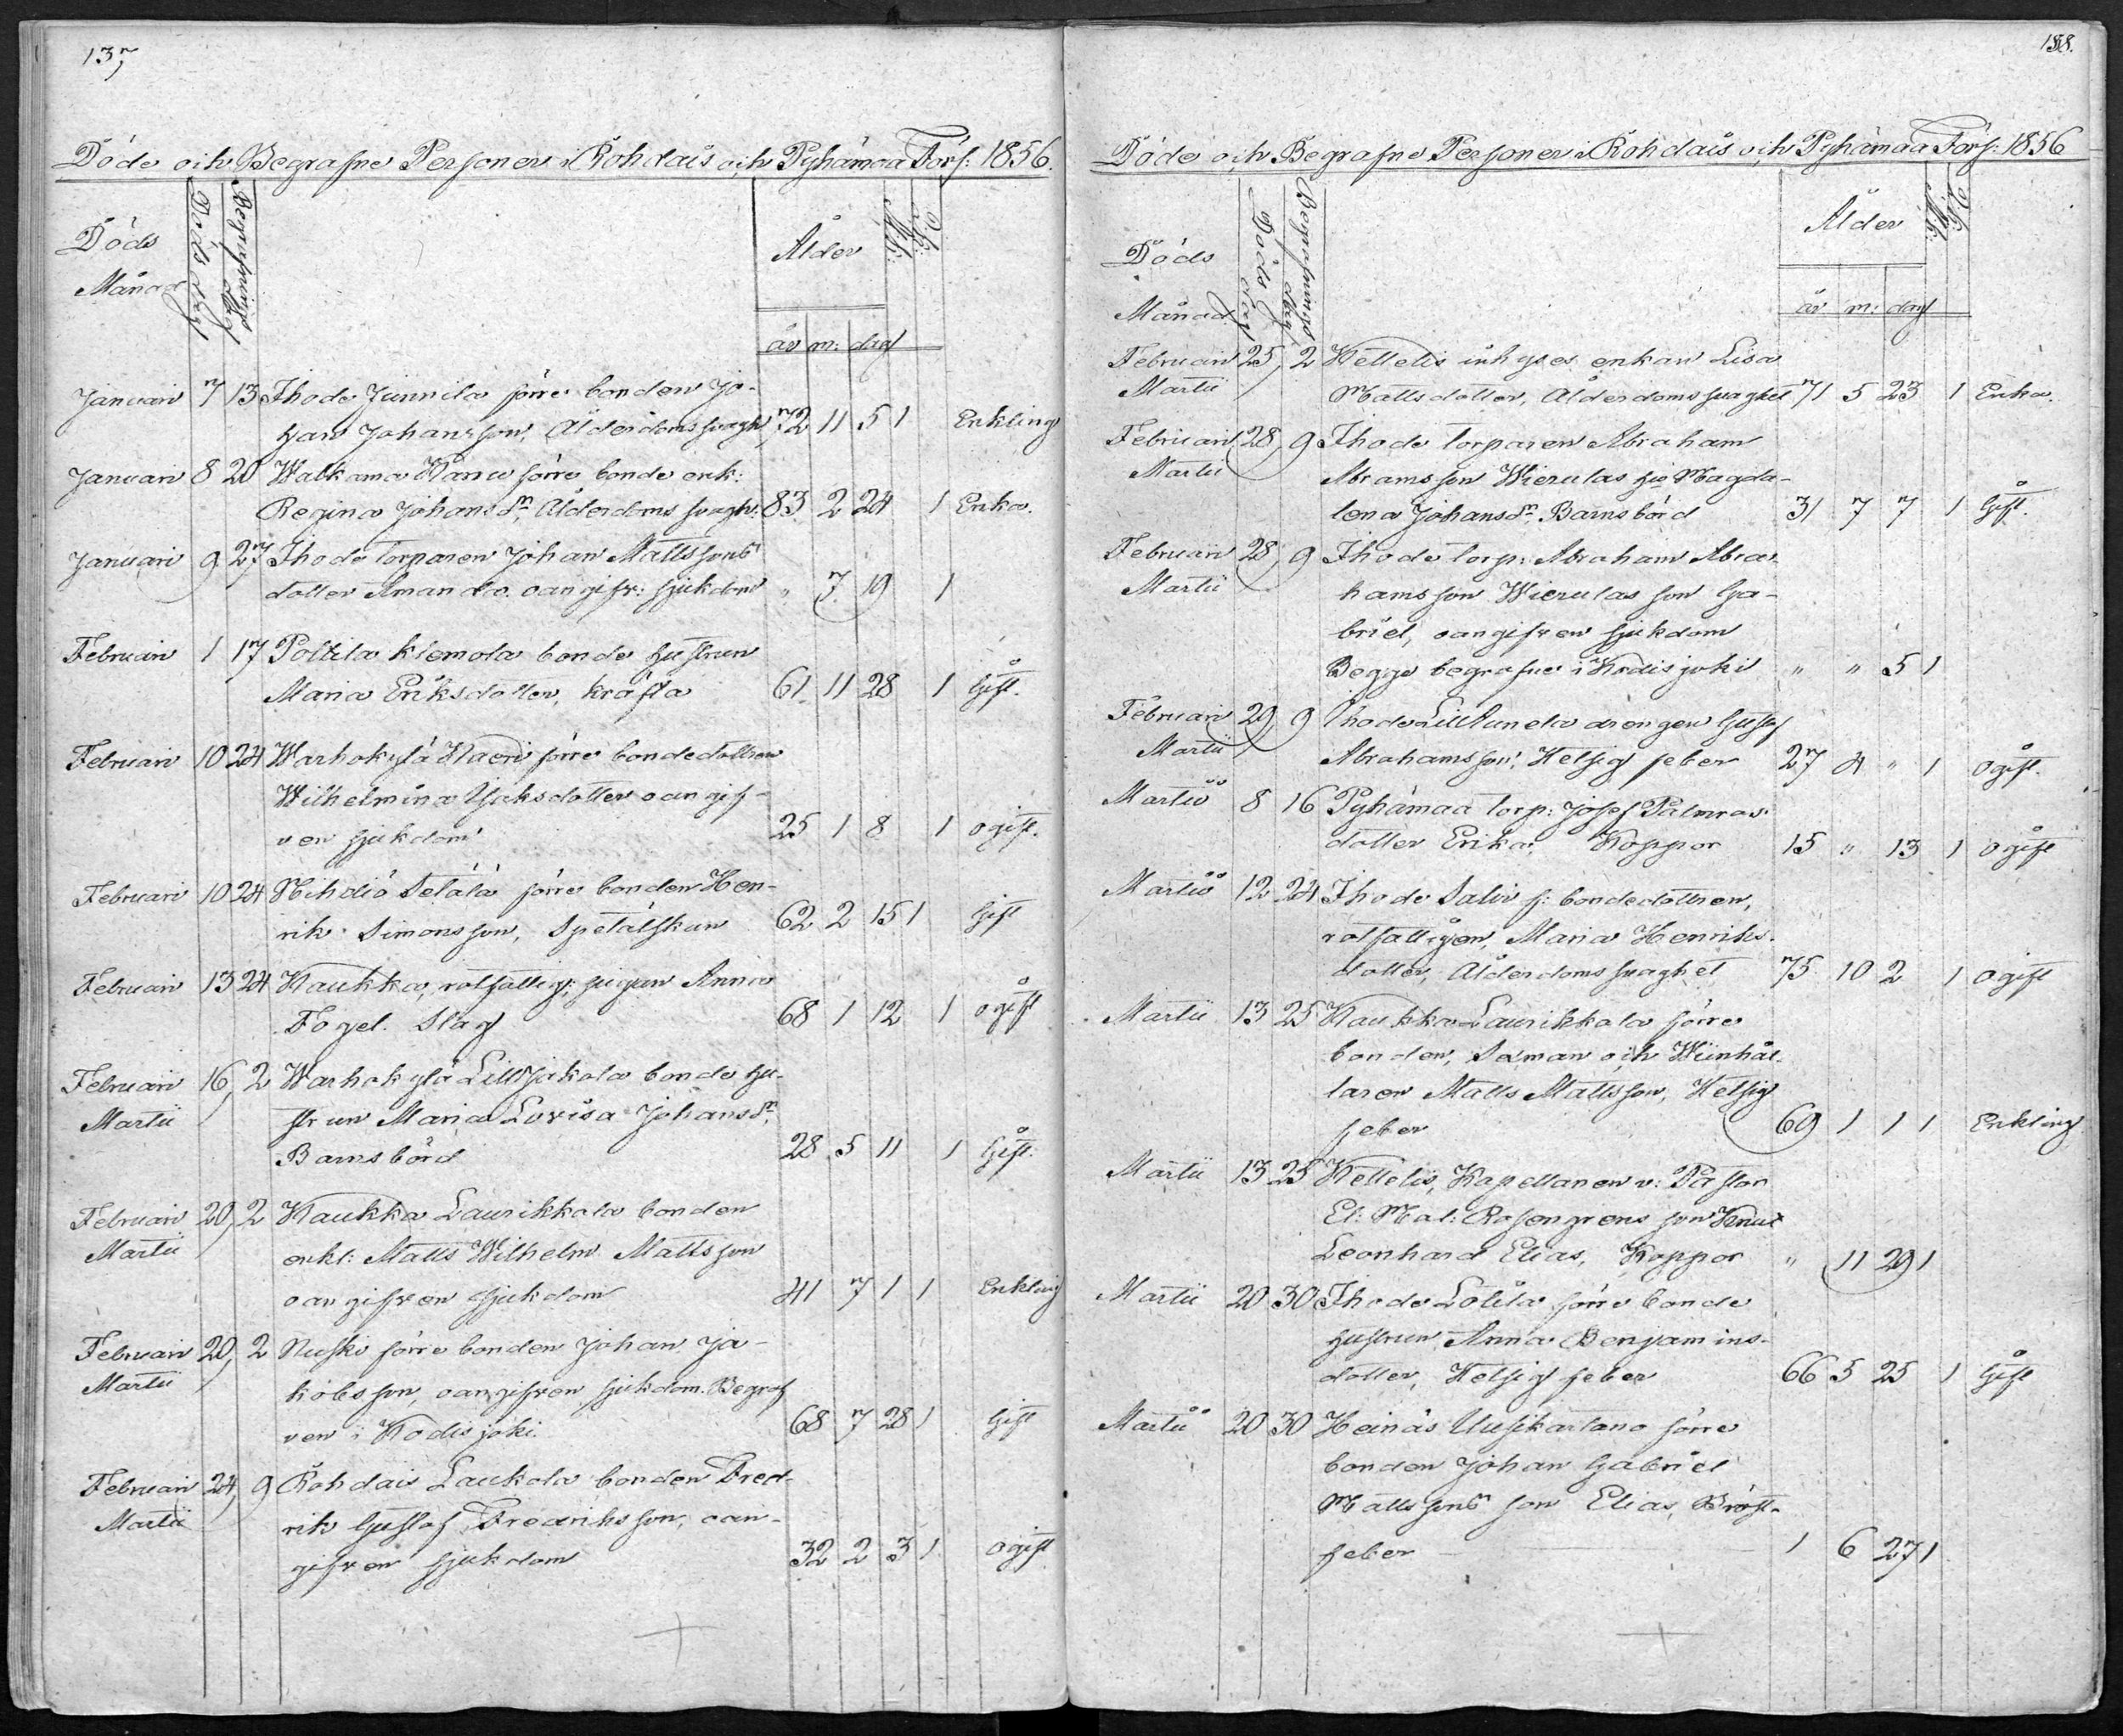 137,
Döde och Begrafne Personer i Rohdais och Pyhämaa Förs: 1856.
Döds Månad
Döds dag
Begrafnings dag
Ålder
Mk:
Qk:
år m: dag
Januari 7 13 Ihode Junnila förre bonden Jo-
han Johansson, Ålderdomssvagh. 72 11 5 1 Enkling
Januari 8 20 Walkama förre bonde enk:
Regina Johansdr, Ålderdoms svagh: 83 2 24 1 Enka.
Januari 9 27 Ihode torparen Johan Mattssons
dotter Amanda oangifv: sjukdom " 7 19 1
Februari 1 17 Polttila Klemola bonde hustrun
Maria Eriksdotter, kräfta 61 11 28 1 Gift.
Februari 10 24 Warhokylä förre bondedottren
Wilhelmina Isaksdotter oangif-
ven sjukdom 25 1 8 1 ogift.
Februari 10 24 Mihdiö Setälä förre bonden Hen-
rik Simonsson, Spetälskan 62 2 15 1 Gift
Februari 13 24 Kaukka, rotfattig: pigan Anna
Fogel. Slag 68 1 12 1 ogift
Februari 16, 2 Warhokylä Lilljakola bonde hu-
Martii strun Maria Lovisa Johansdr,
Barnsbörd 28 5 11 1 Gift.
Februari 20, 2 Kaukka Laurikkala bonden
Martii enkl: Matts Wilhelm Mattsson
oangifven sjukdom 41 7 1 1 Enkling
Februari 20, 2 Nuski förre bonden Johan Ja-
Martii kobsson, oangifven sjukdom. Begraf
ven i Kodisjoki. 68 7 28 1 Gift
Februari 24, 9 Rohdais Laukola bonden Fred-
Martii rik Gustaf Fredriksson, oan-
gifven sjukdom 32 2 3 1 ogift
138.
Döde och Begrafne Personer i Rohdais och Pyhämaa Förs: 1856
Döds
Månad
Döds dag
Begrafnings dag
Ålder
Mk:
Qk
år m: dag
Februari 25, 2 Kettelis inhyses enkan Lisa
Martii Mattsdotter, Ålderdomssvaghet 71 5 23 1 Enka.
Februari 28, 9 Ihode torparen Abraham
Martii Abramsson Wierulas hu Magda-
lena Johansdr, Barnsbörd 31 7 7 1 Gift.
Februari 28, 9 Ihode torp: Abraham Abra-
Martii hamsson Wierulas son Ga-
briel, oangifven sjukdom
Begge begrafne i Kodisjoki " " 5 1
Februari 29, 9 Ihode drengen Gustaf
Martii Abrahamsson, Hetsig feber 27 4 " 1 ogift.
Martii 8 16 Pyhämaa torp: Josef Palmros
dotter Erika, Koppor 15 " 13 1 ogift
Martii 12 24 Ihode Salw f: bondedottren,
rotfattigen, Maria Henriks-
dotter, Ålderdomssvaghet 75 10 2 1 ogift
Martii 13 25 Kaukka Laurikkala förre
bonden, Sexman och
Matts Mattsson, Hetsig
feber 69 1 1 1 Enkling
Martii 13 25 Kettelis, Kapellanen v: Pastor
El: Mat: Rosengrens son Knut
Leonhard Elias, Koppor " 11 29 1
Martii 20 30 Ihode Lotila förre bonde
hustrun, Anna Benjamins-
dotter, Hetsig feber 66 5 25 1 Gift
Martii 20 30 Heinäs Uusikartano förre
bonden Johan Gabriel
Mattssons son Elias, Bröst-
feber 1 6 27 1